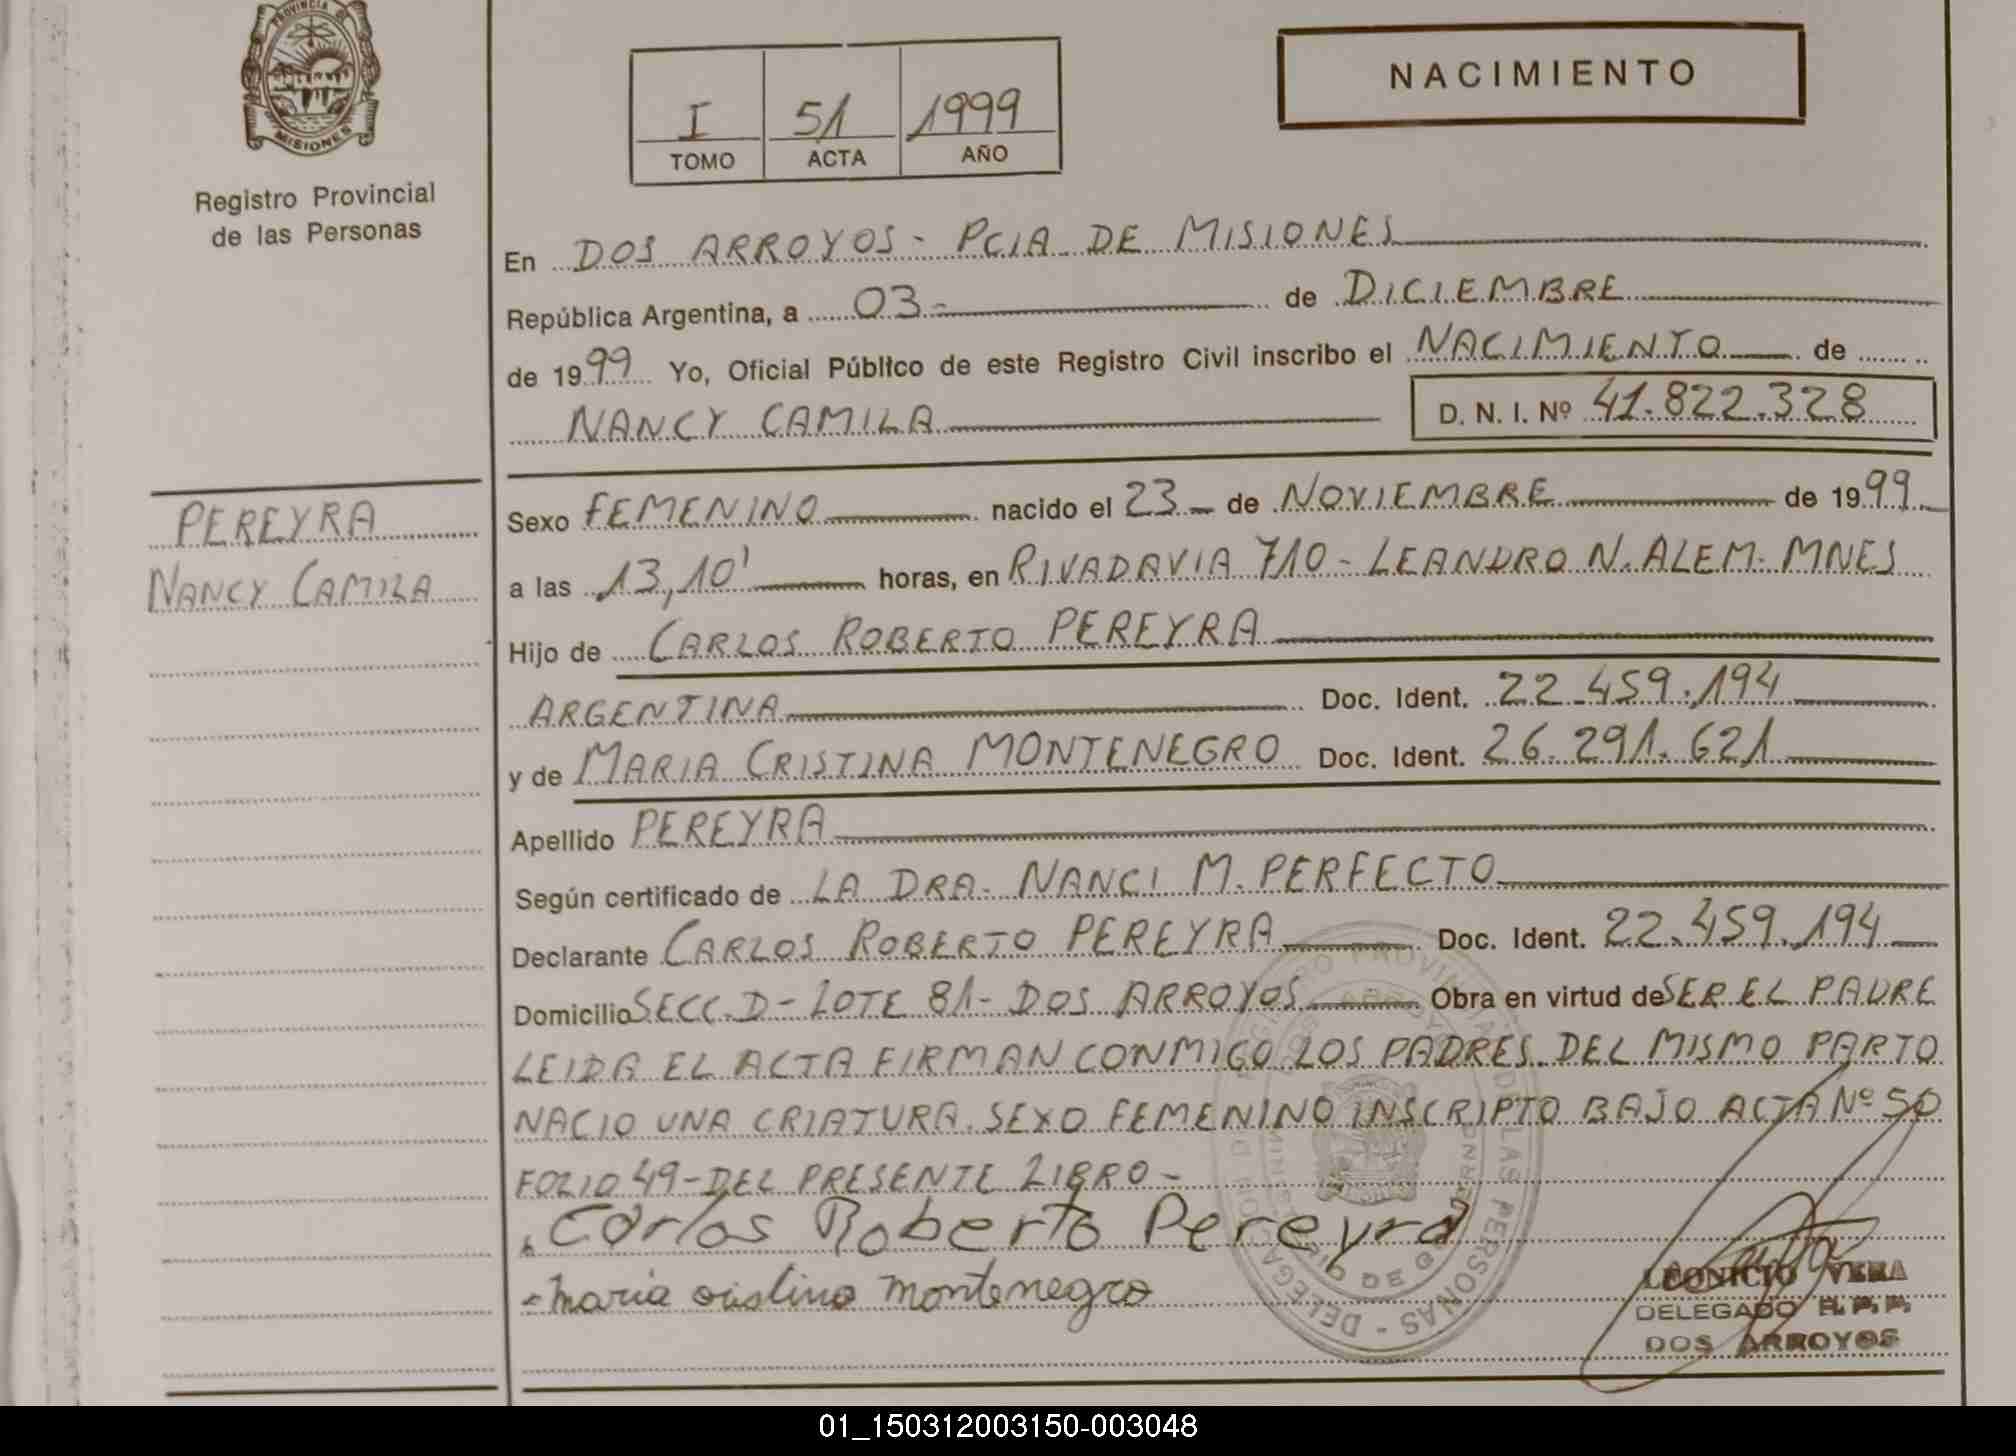 PROVINCIA DE
MISIONES
Registro Provincial
de las Personas
I 51 1999
TOMO ACTA AÑO
NACIMIENTO
En DOS ARROYOS - PCIA DE MISIONES
República Argentina, a 03 - de DICIEMBRE
de 1999 Yo, Oficial Público de este Registro Civil inscribo el NACIMIENTO de
NANCY CAMILA D. N. I. Nº 41.822.328
PEREYRA
NANCY CAMILA
Sexo FEMENINO nacido el 23 de NOVIEMBRE de 1999
a las 13,10' horas, en RIVADAVIA 710 - LEANDRO N. ALEM - MNES
Hijo de CARLOS ROBERTO PEREYRA
ARGENTINA Doc. Ident. 22.459.194
y de MARIA CRISTINA MONTENEGRO Doc. Ident. 26.291.621
Apellido PEREYRA
Según certificado de LA DRA. NANCI M. PERFECTO
Declarante CARLOS ROBERTO PEREYRA Doc. Ident. 22.459.194
Domicilio SECC. D - LOTE 81 - DOS ARROYOS Obra en virtud de SER EL PADRE
LEIDA EL ACTA FIRMAN CONMIGO LOS PADRES. DEL MISMO PARTO
NACIO UNA CRIATURA. SEXO FEMENINO INSCRIPTO BAJO ACTA Nº 50
FOLIO 49 - DEL PRESENTE LIBRO -
Carlos Roberto Pereyra
maria cristina montenegro
LEONICIO VERA
DELEGADO R. P. P.
DOS ARROYOS
01_150312003150-003048